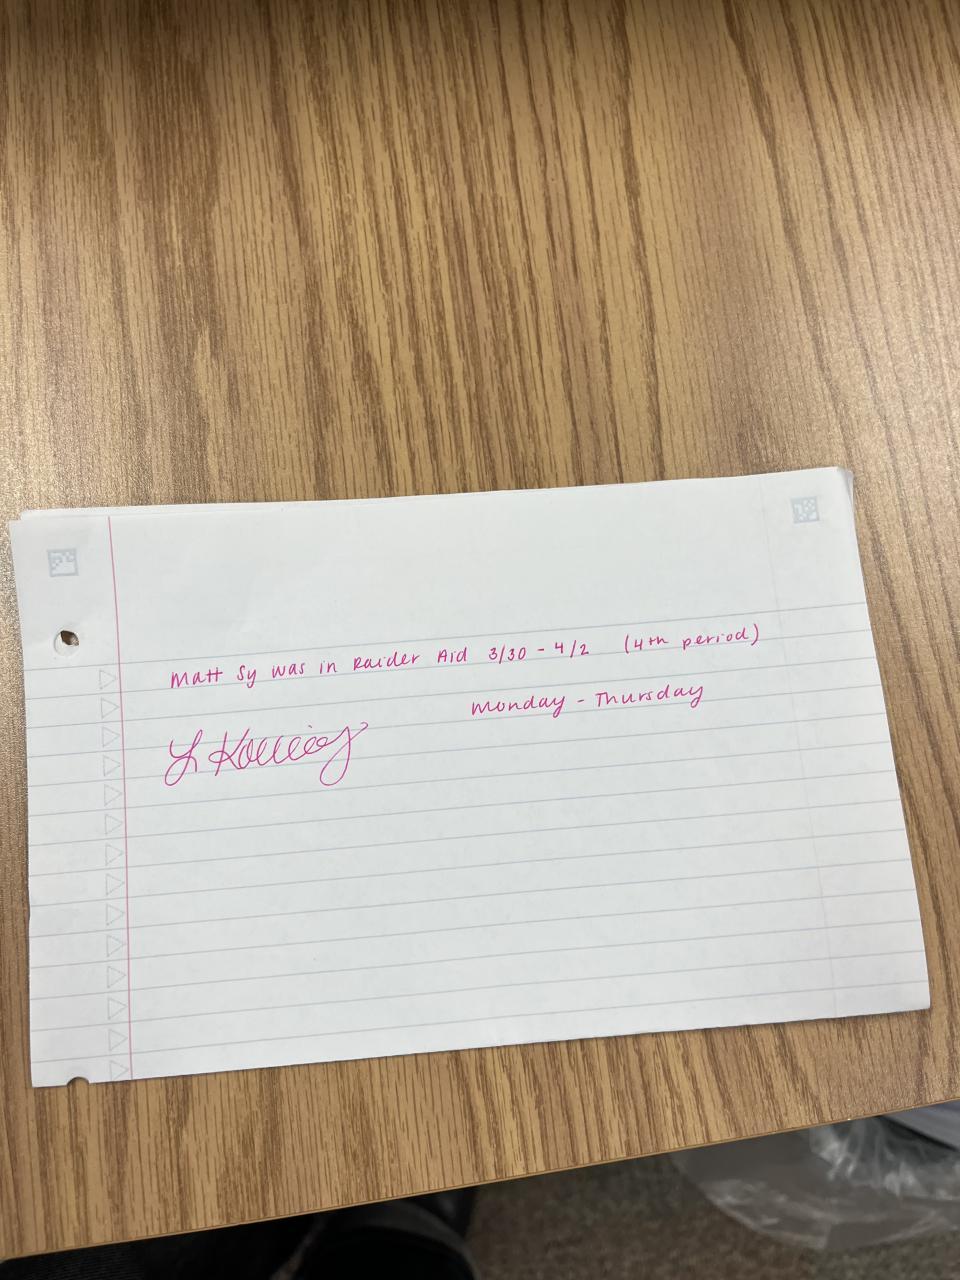 Matt Sy was in Raider Aid 3/30 - 4/2 (4th period)
Monday - Thursday